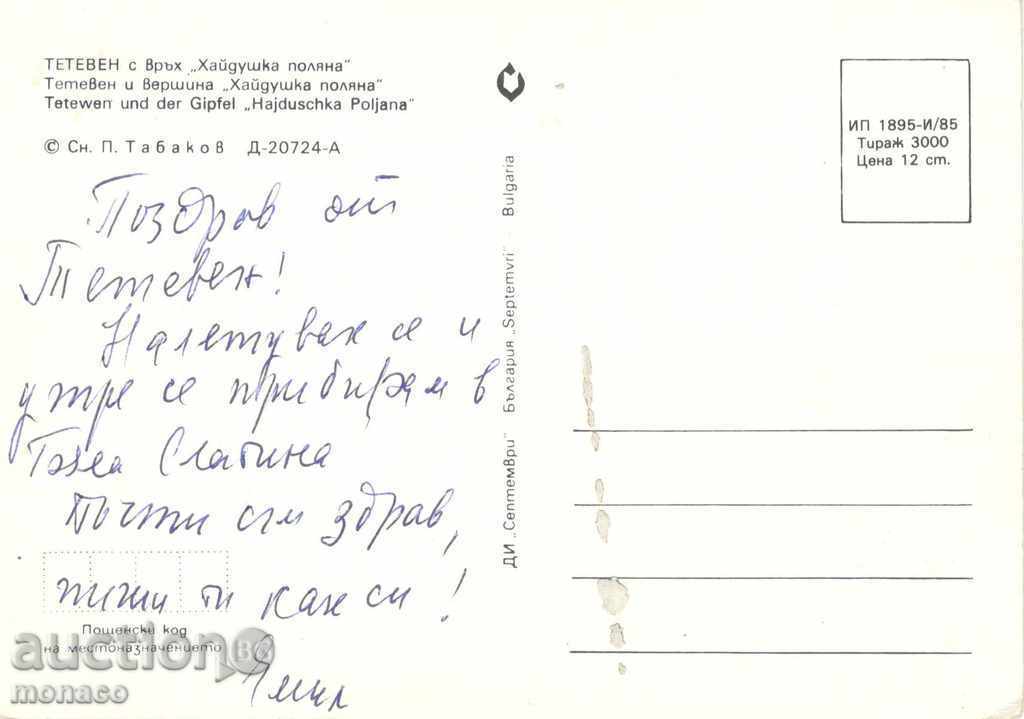 ТЕТЕВЕН с връх „Хайдушка поляна"
Тетевен и вершина „Хайдушка поляна"
Tetewen und der Gipfel „Hajduschka Poljana"
© Сн. П. Табаков Д-20724-А
Поздрав от
Тетевен!
Налетувах се и
утре се прибирам в
Бяла Слатина
Почти съм здрав,
пиши ти как си!
Емил
Пощенски код
на местоназначението
ДИ „Септември" България „Septemvri" - Bulgaria
ИП 1895-И/85
Тираж 3000
Цена 12 ст.
auction.bg
monaco